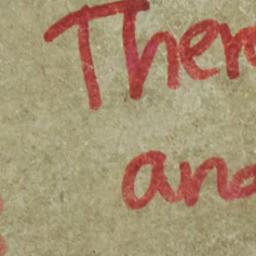 Ther
and